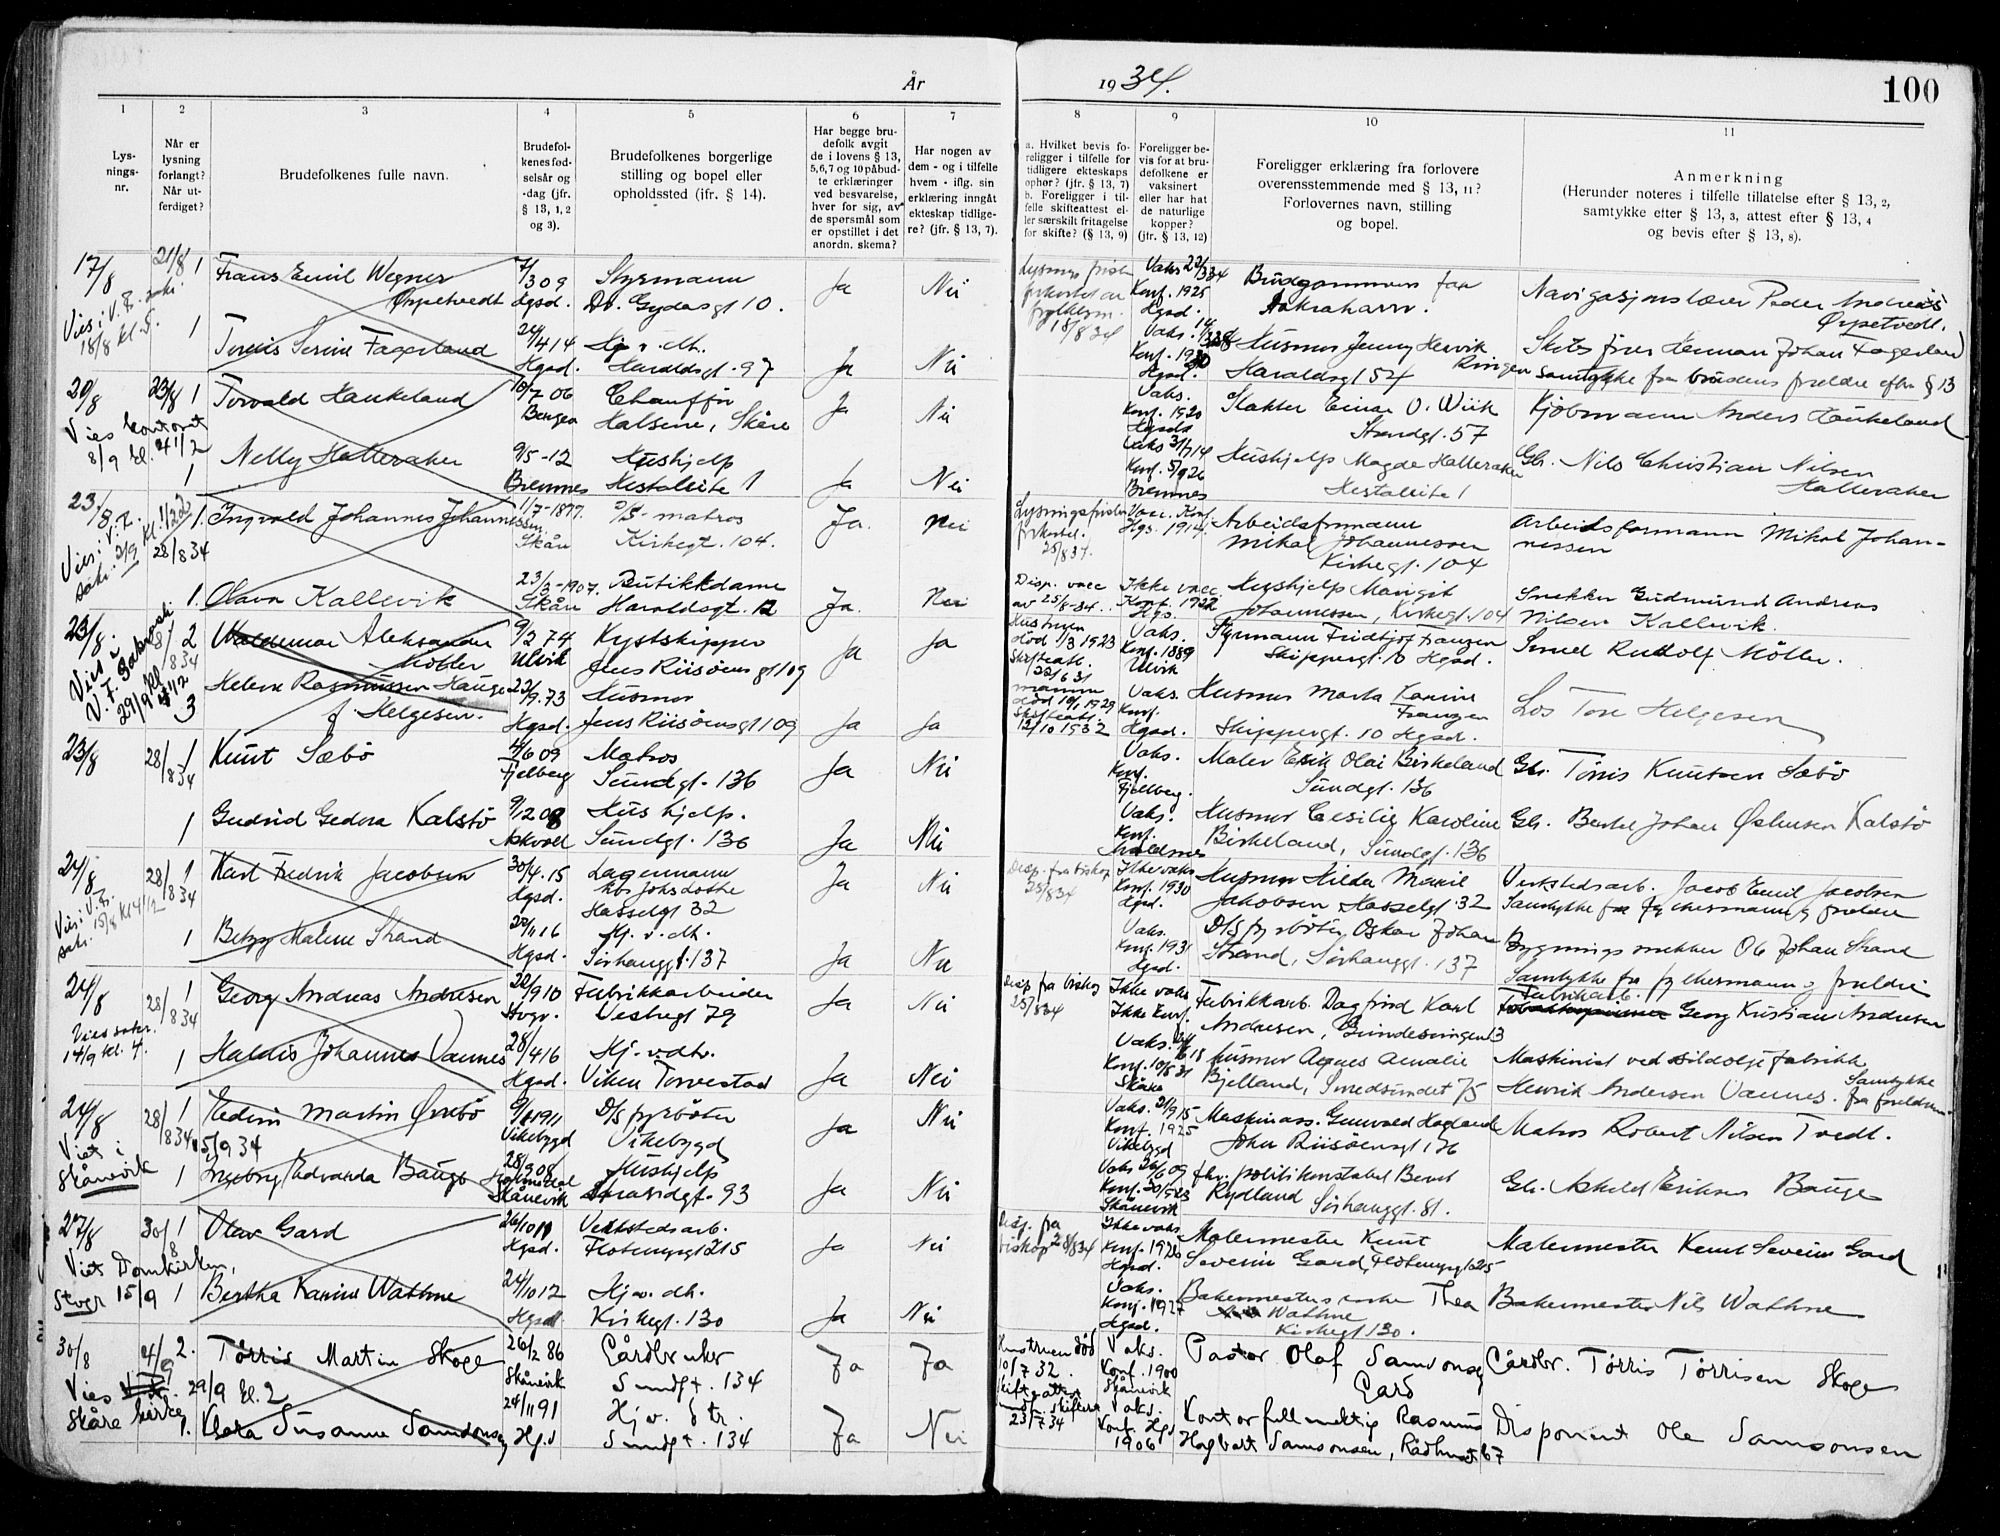 År 1934.
100
1 2 3 4 5 6 7 8 9 10 11
Lysningsnr.
Når er lysning forlangt? Når utferdiget?
Brudefolkenes fulle navn.
Brudefolkenes fødselsår og -dag (jfr. § 13, 1, 2 og 3).
Brudefolkenes borgerlige stilling og bopel eller opholdssted (ifr. § 14).
Har begge brudefolk avgit de i lovens § 13, 5,6,7 og 10 påbudte erklæringer ved besvarelse, hver for sig, av de spørsmål som er opstillet i det anordn. skema?
Har nogen av dem - og i tilfelle hvem - iflg. sin erklæring inngåt ekteskap tidligere? (jfr. § 13, 7).
a. Hvilket bevis foreligger i tilfelle for tidligere ekteskaps ophør? (jfr. § 13, 7) b. Foreligger i tilfelle skifteattest eller særskilt fritagelse for skifte? (§ 13, 9)
Foreligger bevis for at brudefolkene er vaksinert eller har hat de naturlige kopper? (jfr. § 13, 12)
Foreligger erklæring fra forlovere overensstemmende med § 13, 11? Forlovernes navn, stilling og bopel.
Anmerkning (Herunder noteres i tilfelle tillatelse efter § 13, 2, samtykke etter § 13, 3, attest efter § 13, 4 og bevis efter § 13, 8).
17/8 21/8 1 Frans Emil Wegner Ørpetvedt 7/3 09 Hgsd. Styrmann Dr. Gydasgt 10. Ja Nei 18/8 34 Konf. 1925 Hgsd. Brudgommens far Navigasjonslærer Peder Andreas Ørpetvedt.
Vies i V.F. 18/8 kl. 5.
1 Tomis Serine Fagerland 24/4 14 Hgsd. Hj v. dh. Haraldsgt. 97 Ja Nei Vaks. Hgsd. Husmor Jenny Henvik Ringen Haraldsgt 54 Johan Fagerland samtykke fra brudens foreldre efter § 13
20/8 23/8 1 Torvald Haukeland 10/7 06 Bergen Chauffør Halsene, Skåre Ja Nei Vaks. Konf. 1920 Hgsd. Slakter Einar O. Wiik Strandgt. 57 Kjøbmann Anders Haukeland
Vies kontoret 8/9 kl. 4 1/2
1 Nelly Halleraker 9/5-12 Bremnes Hushjelp Ja Nei Vaks 31/7 14 Konf. 5/9 26 Bremnes Hushjelp Magda Halleraker Gbr. Nils Christian Nilsen Halleraker
23/8 28/8 34 1. Ingvald Johannes Johannessen 11/7-1877. Skåre D/S-matros Kirkegt. 104. Ja. Nei Lysningsfristen forkortet. 25/8 34. Vac. Konf. Hgs. 1914. Arbeidsformann Mikal Johannessen Kirkegt. 104 Arbeidsformann Mikal Johannessen
1. Olava Kallevik 23/3-1907. Skåre Butikkdame Haraldsgt. 12 Ja. Nei Disp. vacc av 25/8-34. Ikke vacc Konf. 1922 Hgs. Hushjelp Margit Johannessen, Kirkegt. 104 Snekker Gudmund Andreas Nilsen Kallevik.
23/8 28/8 34 2 Waldemar Aleksander Møller 9/2 74 Ulvik Kystskipper Jens Riisøensgt 109 Ja Ja Hustruen død 1/3 1923 Skifteatt. 22/6 31 Vaks. Konf. 1889 Ulvik Styrmann Fridtjof Franzen Skippergt. 10 Hgsd. Rudolf Möller.
3 Helene Rasmussen Hauge f. Helgesen. 22/9. 73 Hgsd. Husmor Jens Riisøensgt 109 Ja Ja mannen død 19/1 1929 Skifteatt. 12/10 1932 Vaks. Konf. Hgsd. Husmor Marta Karine Franzen Skippergt. 10 Hgsd. Los Tore Helgesen
23/8 28/8 34 1 Knut Sæbö 4/6 09 Fjelberg Matros Sundgt. 136 Ja Nei Vaks. Konf. Fjelberg. Maler Erik Olai Birkeland Sundgt. 136 Gbr. Tönis Knutsen Sæbö
1 Gudrid Gedora Kalstö 9/12 08 Hushjelp. Sundgt. 136 Ja Nei Vaks. Konf. Husmor Cecilie Karoline Birkeland, Sundgt. 136 Gbr. Bertel Johan Østensen Kalstö
24/8 28/8 34 1 Karl Fredrik Jacobsen 30/4. 15 Hgsd. Lagermann Hasselgt 32 Ja Nei Disp. fra biskop 25/8 34 Ikke vaks Konf. 1930 Hgsd. Husmor Hilda Marie Jakobsen Hasselgt 32 Verkstedsarb. Jacob Emil Jacobsen Samtykke fra fylkesmann og foreldre
1 Betzy Malene Strand 20/11 16 Hgsd. Hj. v. dh. Sørhauggt. 137 Ja Nei Vaks. Konf. 1931 Hgsd. D/S fyrbøter Oskar Johan Strand, Sørhauggt. 137 Bygningssnekker Ole Johan Strand Samtykke fra fylkesmann og foreldre
24/8 28/8 34 1 Georg Andreas Andresen 22/9 10 Stvgr. Fabrikkarbeider Vestregt 79 Ja Nei Disp fra biskop 25/8 34 Ikke vaks Ikke konf. Fabrikkarb. Dagfind Karl Andresen, Grindesvingen 3 Fabrikarb. Georg Kristian Andresen
Vies sakr. 14/9 kl. 4.
1 Haldis Johannes Vannes 28/4 16 Hgsd. Hj. v dh. Viken Torvestad Ja Nei Vaks. Konf. 10/5 31 Skåre Husmor Agnes Amalie Bjelland, Smedsundet 75 Maskinist ved sildoljefabrikk Henrik Andersen Vannes. Samtykke fra foreldrene
24/8 28/8 34 1 Edvin Martin Ørrebö 9/8 1911 Vikebygd D/S fyrbøter Vikebygd Ja Nei Vaks. 21/9 15 Konf. 1925 Vikebygd Maskinass. Gunvald Hogland John Riisøensgt 136 Matros Robert Nilsen Tvedt.
Viet i Skånevik 15/9 34
1 Ingeborg Edvarda Bauge 28/9 08 Skånevik Hushjelp Strandgt. 93 Ja Nei Vaks 26/6 09 Konf. 30/5 23 Skånevik fhv. politikonstabel Bernt Rydland Sørhauggt. 81. Gbr. Askeld Eriksen Bauge
27/8 30/8 1 Olav Gard 26/10 10 Hgsd. Verkstedsarb. Flotmyrgt 215 Ja Nei Disp. fra biskop 28/8 34 Ikke vaks Konf. 1926 Hgsd. Malermester Knut Severin Gard, Flotmyrgt 215 Malermester Knut Severin Gard
Viet Domkirken, Stvgr 15/9
1 Bertha Karine Wathne 24/10 12 Hgsd Hj v. dh. Kirkegt. 130 Ja Nei Vaks. Konf. 1927 Hgsd. Bakermesters enke Thea Wathne Kirkegt 130. Bakermester Nils Wathne
30/8 4/9 2. Tørris Martin Skoge 26/2 86 Skånevik Gårdbruker Sundgt. 134 Ja Ja Hustruen død 10/7 32. Skifteattest 23/7 34 Vaks. Konf. 1900 Skånevik Pastor Olaf Samsonsen Gard Gårdbr. Tørris Tørrisen Skoge
Vies 29/9 kl. 2 Skåre kirke
1. Klara Susanne Samsonsen 24/11 91 Hgsd Hj v. Sundgt. 134 Ja Nei Vaks. Konf Hgsd 1906 Kontorfullmektig Rasmus Hagbart Samsonsen, Rådhusgt 67 Disponent Ole Samsonsen